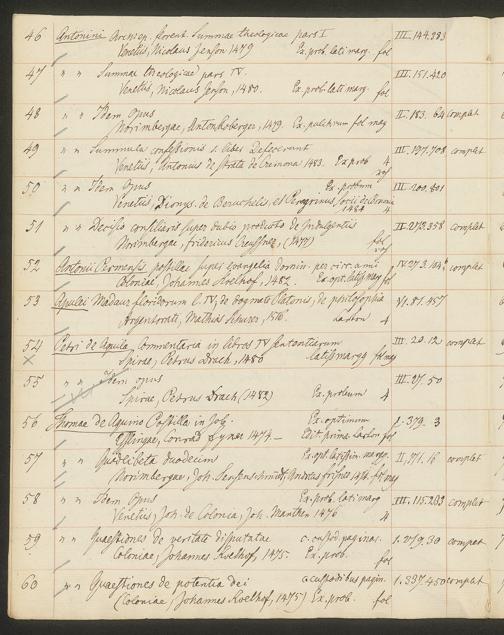 46 Antonini Archiep. florent. Summae theologicae pars I III.144.283
Venetiis, Nicolaus Jenson 1479 Ex. prob. lati marg. fol
47 " " Summae theologicae pars IV. III.151.420
Venetiis, Nicolaus Jenson, 1480. Ex. prob. lati marg. fol
48 " " Idem Opus II.183. 64 complet
Norimbergae, Anton Koberger, 1479. Ex. pulchrum fol maj
49 " " Summula confessionis s. liber Defecerunt III.197.708 complet
Venetiis, Antonius de Strata de Cremona 1483. Ex prob 4
50 " " Idem Opus Ex. probum III.200.801
Venetiis, Dionys. de Bertochis, et Peregrinus, 1484 4
51 " " Decisio consiliaris super dubio producto de Indulgentiis II.273.358 complet
Norimbergae, fridericus Creussner, (1477) fol
52 Antonii Parmensis postillae super evangelia domin. per circ. anni IV.273.104 complet
Coloniae, Johannes Koelhof, 1482. Ex. opt. latiss marg fol
53 Apuleii Madaur floridorum l. IV, de dogmate Platonis, de philosophia VI.81.457
Argentorati, Mathias Schurer, 1516. 4
54 Petri de Aquila, Commentaria in libros IV Sententiarum III. 20. 12 complet
Spirae, Petrus Drach, 1480 latiss marg fol
55 " " Idem opus III.27. 50
Spirae, Petrus Drach (1482) Ex. probum 4
56 Thomae de Aquino Postilla in Job. Ex. optimum 1.379. 3
Esslingae, Conrad Fyner 1474 — Edit prima fol
57 " " Quodlibeta duodecim Ex. opt. latissim. marg. II.171.16 complet
Norimbergae, Joh. Sensenschmidt, Andreas frisner 1474. fol maj
58 " " Idem Opus Ex. prob. lati marg III.115.203 complet
Venetiis, Joh. de Colonia, Joh. Manthen 1476 4
59 " " Quaestiones de veritate disputatae c. custod. paginar. 1.279.30 compat
Coloniae, Johannes Koelhof, 1475. Ex. prob. fol
60 " " Quaestiones de potentia dei c. custodibus pagin. 1.337.450 complet
(Coloniae, Johannes Koelhof, 1475) Ex. prob. fol